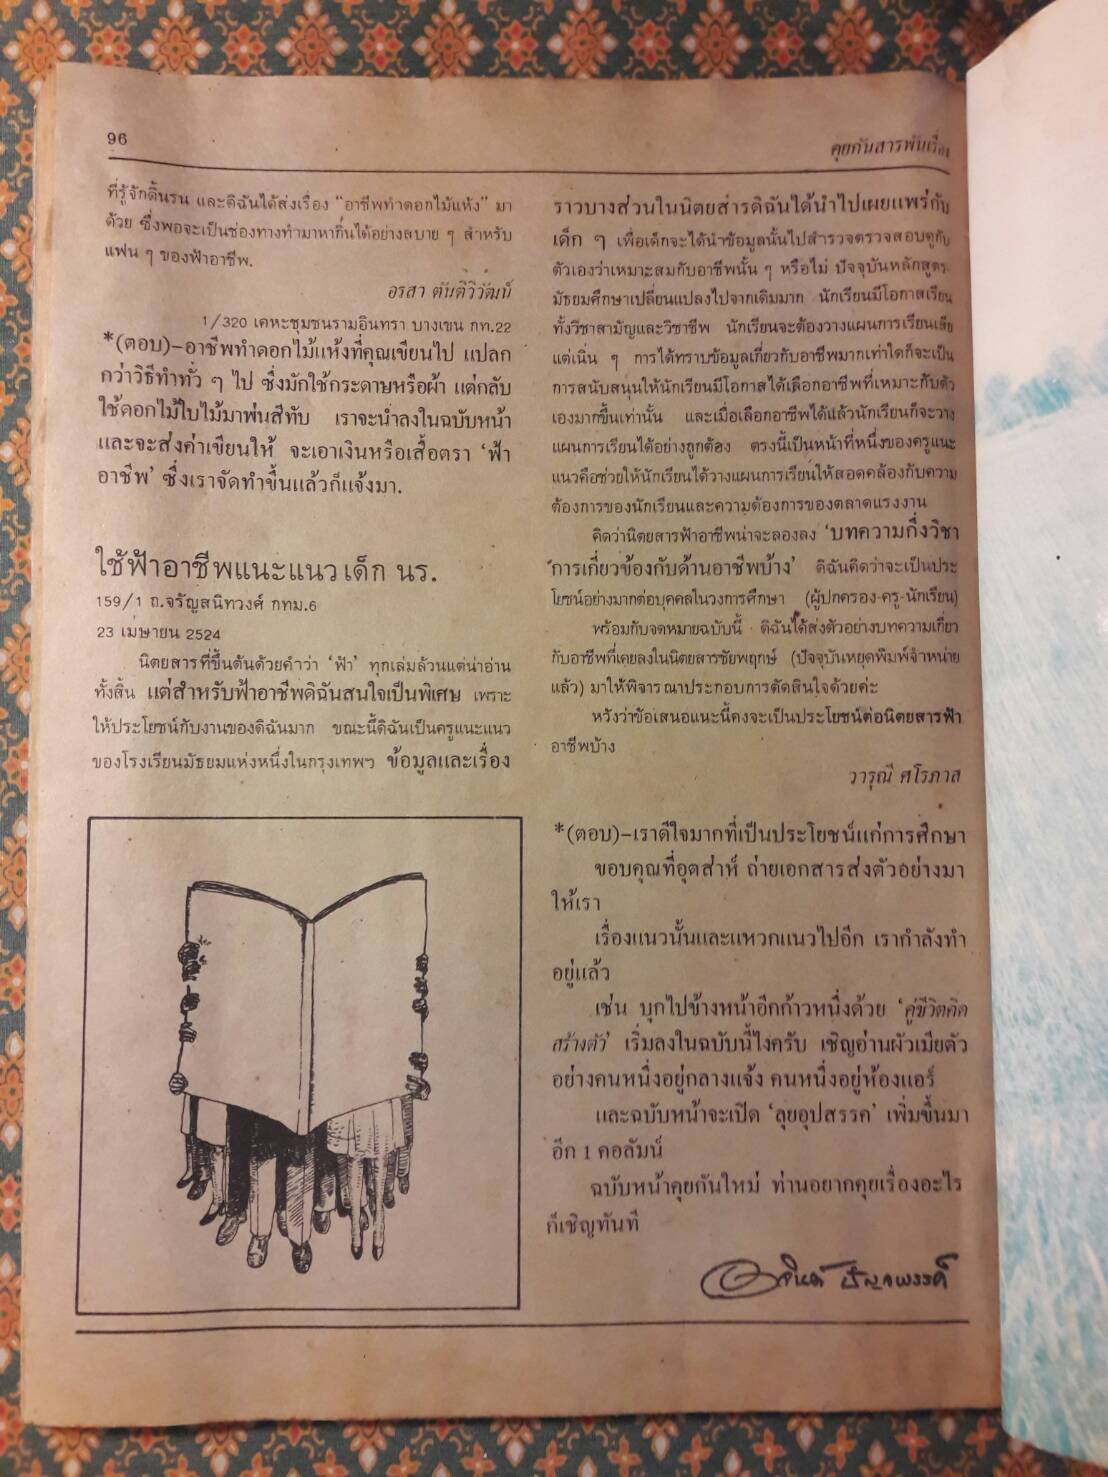 96
คุยกันสารพันเรื่อง
ที่รู้จักดิ้นรน และดิฉันได้ส่งเรื่อง "อาชีพทำดอกไม้แห้ง" มา
ด้วย ซึ่งพอจะเป็นช่องทางทำมาหากินได้อย่างสบาย ๆ สำหรับ
แฟน ๆ ของฟ้าอาชีพ.
อรสา ตันติวิวัฒน์
1/320 เคหะชุมชนรามอินทรา บางเขน กท.22
*(ตอบ)-อาชีพทำดอกไม้แห้งที่คุณเขียนไป แปลก
กว่าวิธีทำทั่ว ๆ ไป ซึ่งมักใช้กระดาษหรือผ้า แต่กลับ
ใช้ดอกไม้ใบไม้มาพ่นสีทับ เราจะนำลงในฉบับหน้า
และจะส่งค่าเขียนให้ จะเอาเงินหรือเสื้อตรา 'ฟ้า
อาชีพ' ซึ่งเราจัดทำขึ้นแล้วก็แจ้งมา.
ใช้ฟ้าอาชีพแนะแนวเด็ก นร.
159/1 ถ.จรัญสนิทวงศ์ กทม.6
23 เมษายน 2524
นิตยสารที่ขึ้นต้นด้วยคำว่า 'ฟ้า' ทุกเล่มล้วนแต่น่าอ่าน
ทั้งสิ้น แต่สำหรับฟ้าอาชีพดิฉันสนใจเป็นพิเศษ เพราะ
ให้ประโยชน์กับงานของดิฉันมาก ขณะนี้ดิฉันเป็นครูแนะแนว
ของโรงเรียนมัธยมแห่งหนึ่งในกรุงเทพฯ ข้อมูลและเรื่อง
ราวบางส่วนในนิตยสารดิฉันได้นำไปเผยแพร่กับ
เด็ก ๆ เพื่อเด็กจะได้นำข้อมูลนั้นไปสำรวจตรวจสอบดูกับ
ตัวเองว่าเหมาะสมกับอาชีพนั้น ๆ หรือไม่ ปัจจุบันหลักสูตร
มัธยมศึกษาเปลี่ยนแปลงไปจากเดิมมาก นักเรียนมีโอกาสเรียน
ทั้งวิชาสามัญและวิชาชีพ นักเรียนจะต้องวางแผนการเรียนเสีย
แต่เนิ่น ๆ การได้ทราบข้อมูลเกี่ยวกับอาชีพมากเท่าใดก็จะเป็น
การสนับสนุนให้นักเรียนมีโอกาสได้เลือกอาชีพที่เหมาะกับตัว
เองมากขึ้นเท่านั้น และเมื่อเลือกอาชีพได้แล้วนักเรียนก็จะวาง
แผนการเรียนได้อย่างถูกต้อง ตรงนี้เป็นหน้าที่หนึ่งของครูแนะ
แนวคือช่วยให้นักเรียนได้วางแผนการเรียนให้สอดคล้องกับความ
ต้องการของนักเรียนและความต้องการของตลาดแรงงาน
คิดว่านิตยสารฟ้าอาชีพน่าจะลองลง 'บทความกึ่งวิชา
การเกี่ยวข้องกับด้านอาชีพบ้าง' ดิฉันคิดว่าจะเป็นประ
โยชน์อย่างมากต่อบุคคลในวงการศึกษา (ผู้ปกครอง-ครู-นักเรียน)
พร้อมกับจดหมายฉบับนี้ ดิฉันได้ส่งตัวอย่างบทความเกี่ยว
กับอาชีพที่เคยลงในนิตยสารชัยพฤกษ์ (ปัจจุบันหยุดพิมพ์จำหน่าย
แล้ว) มาให้พิจารณาประกอบการตัดสินใจด้วยค่ะ
หวังว่าข้อเสนอแนะนี้คงจะเป็นประโยชน์ต่อนิตยสารฟ้า
อาชีพบ้าง
วารุณี ศโรภาส
*(ตอบ)-เราดีใจมากที่เป็นประโยชน์แก่การศึกษา
ขอบคุณที่อุตส่าห์ ถ่ายเอกสารส่งตัวอย่างมา
ให้เรา
เรื่องแนวนั้นและแหวกแนวไปอีก เรากำลังทำ
อยู่แล้ว
เช่น บุกไปข้างหน้าอีกก้าวหนึ่งด้วย 'คู่ชีวิตคิด
สร้างตัว' เริ่มลงในฉบับนี้ไงครับ เชิญอ่านผัวเมียตัว
อย่างคนหนึ่งอยู่กลางแจ้ง คนหนึ่งอยู่ห้องแอร์
และฉบับหน้าจะเปิด 'ลุยอุปสรรค' เพิ่มขึ้นมา
อีก 1 คอลัมน์
ฉบับหน้าคุยกันใหม่ ท่านอยากคุยเรื่องอะไร
ก็เชิญทันที
อาจินต์ ปัญจพรรค์